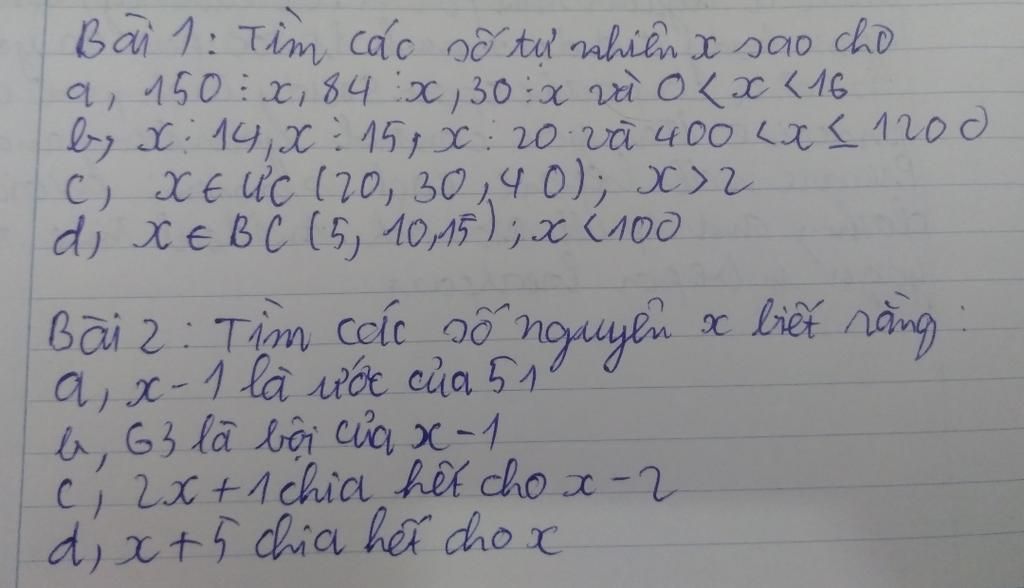 Bài 1: Tìm các số tự nhiên x sao cho
a, 150 ⋮ x, 84 ⋮ x, 30 ⋮ x và 0 < x < 16
b, x ⋮ 14, x ⋮ 15, x ⋮ 20 và 400 < x ≤ 1200
c, x ∈ ƯC (20, 30, 40); x > 2
d, x ∈ BC (5, 10, 15); x < 100
Bài 2: Tìm các số nguyên x biết rằng:
a, x - 1 là ước của 51
b, 63 là bội của x - 1
c, 2x + 1 chia hết cho x - 2
d, x + 5 chia hết cho x